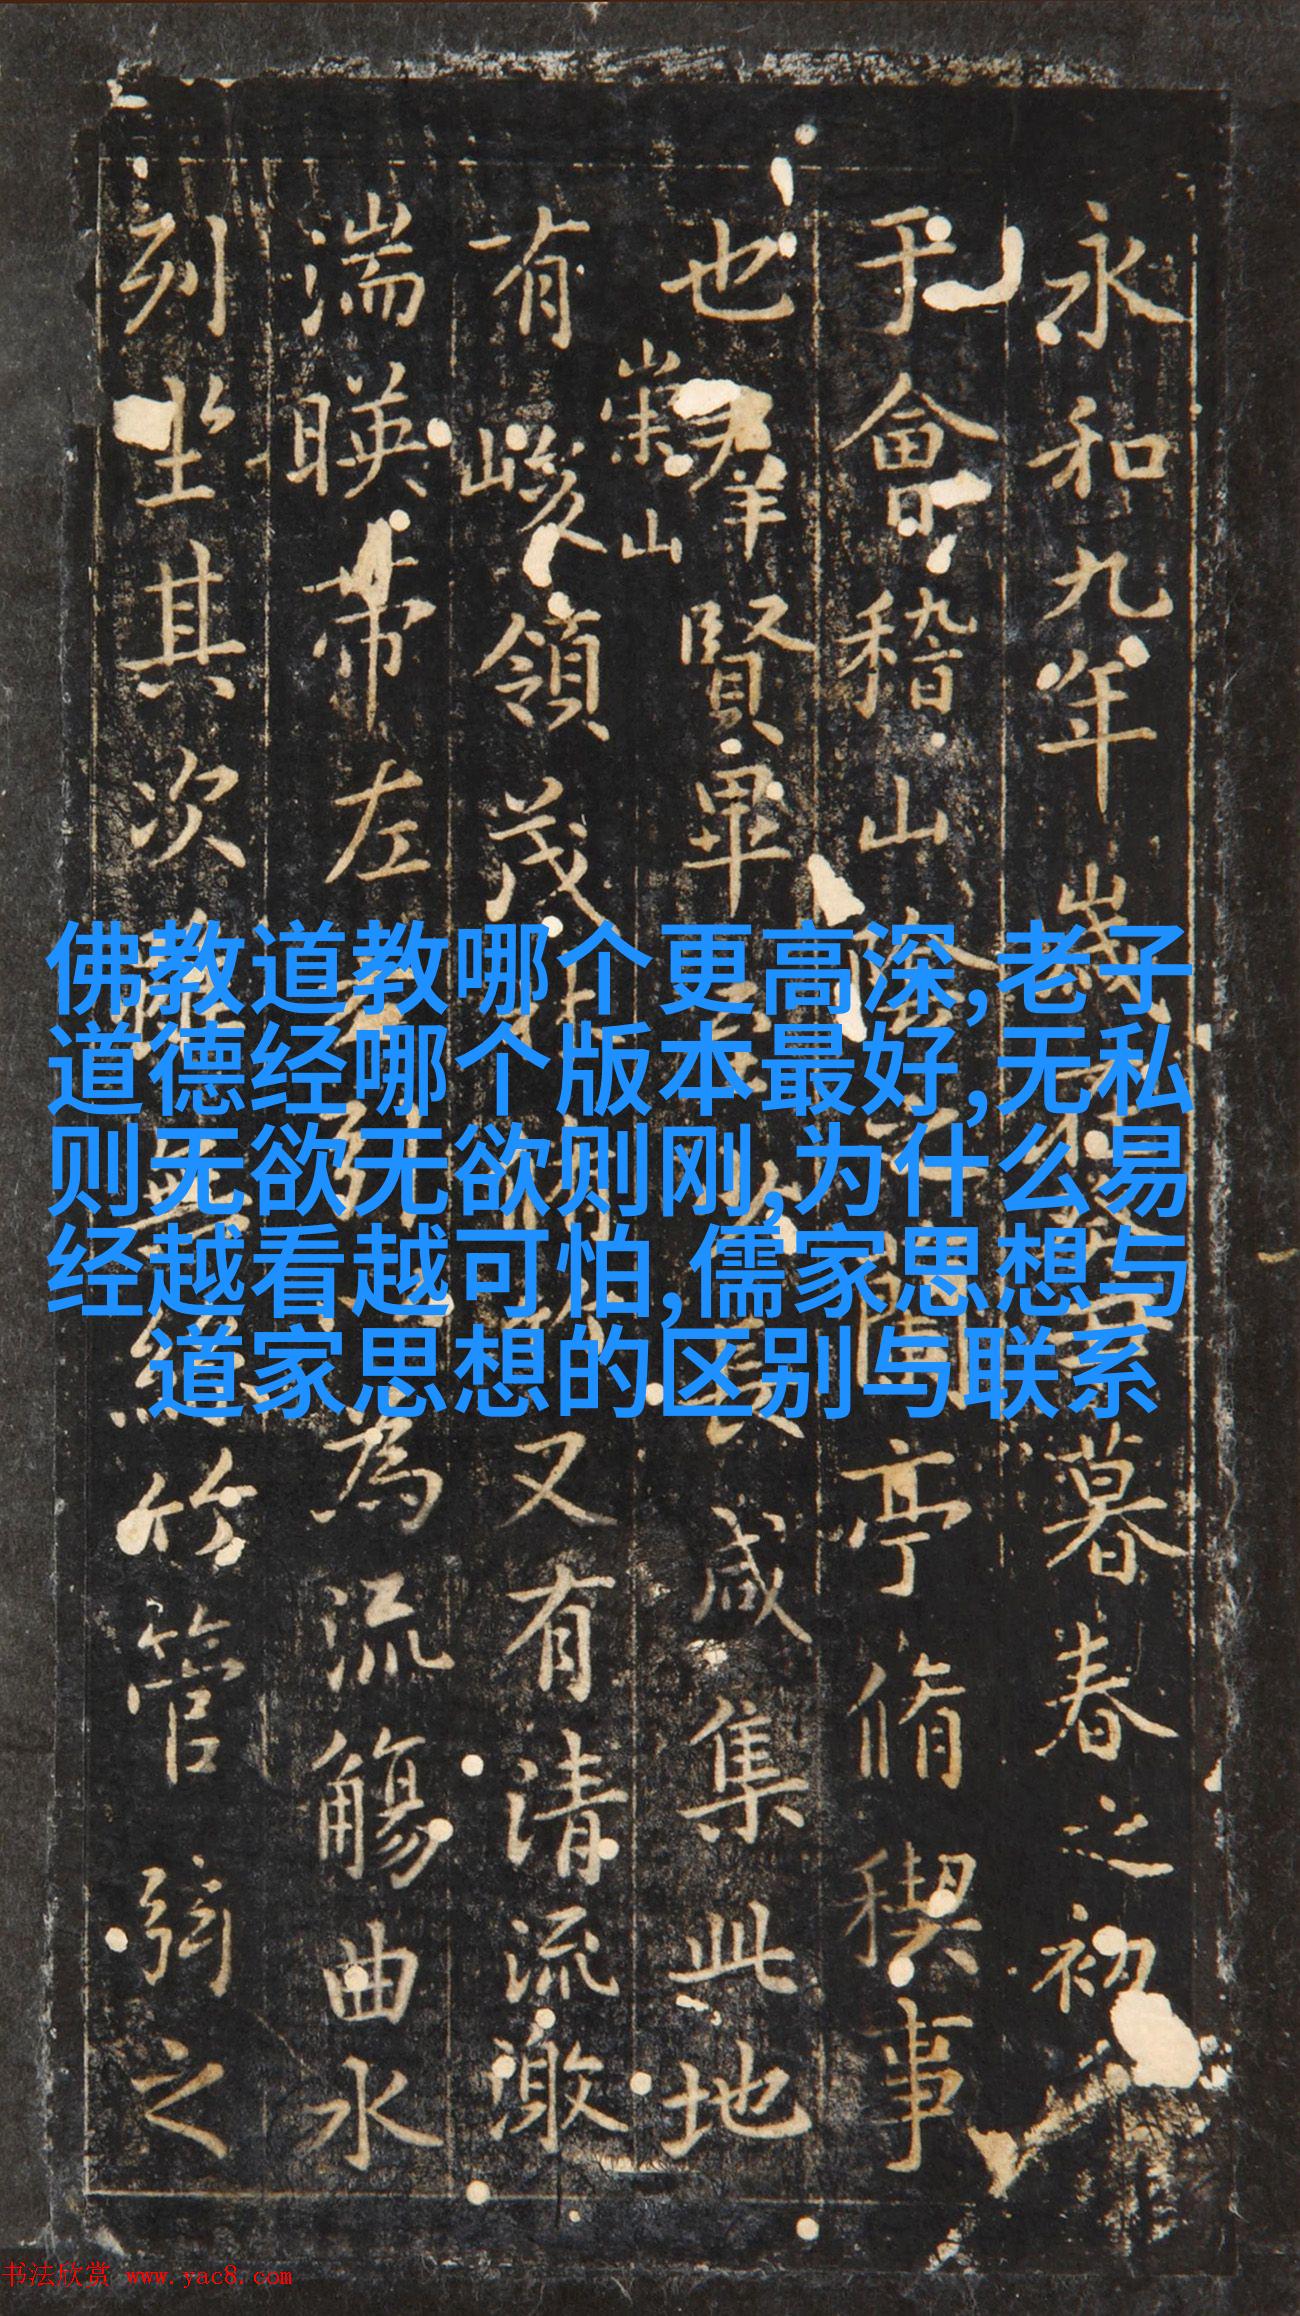 永和九年歲在癸丑暮春之初
于會稽山陰之蘭亭脩稧事
也羣賢畢至少長咸集此地
崇山
有峻領茂林脩竹又有清流激
湍暎帶左右引以為流觴曲水
列坐其次雖無絲竹管弦之
佛教道教哪个更高深,老子
道德经哪个版本最好,无私
则无欲无欲则刚,为什么易
经越看越可怕,儒家思想与
道家思想的区别与联系
书法欣赏 www.yac8.com